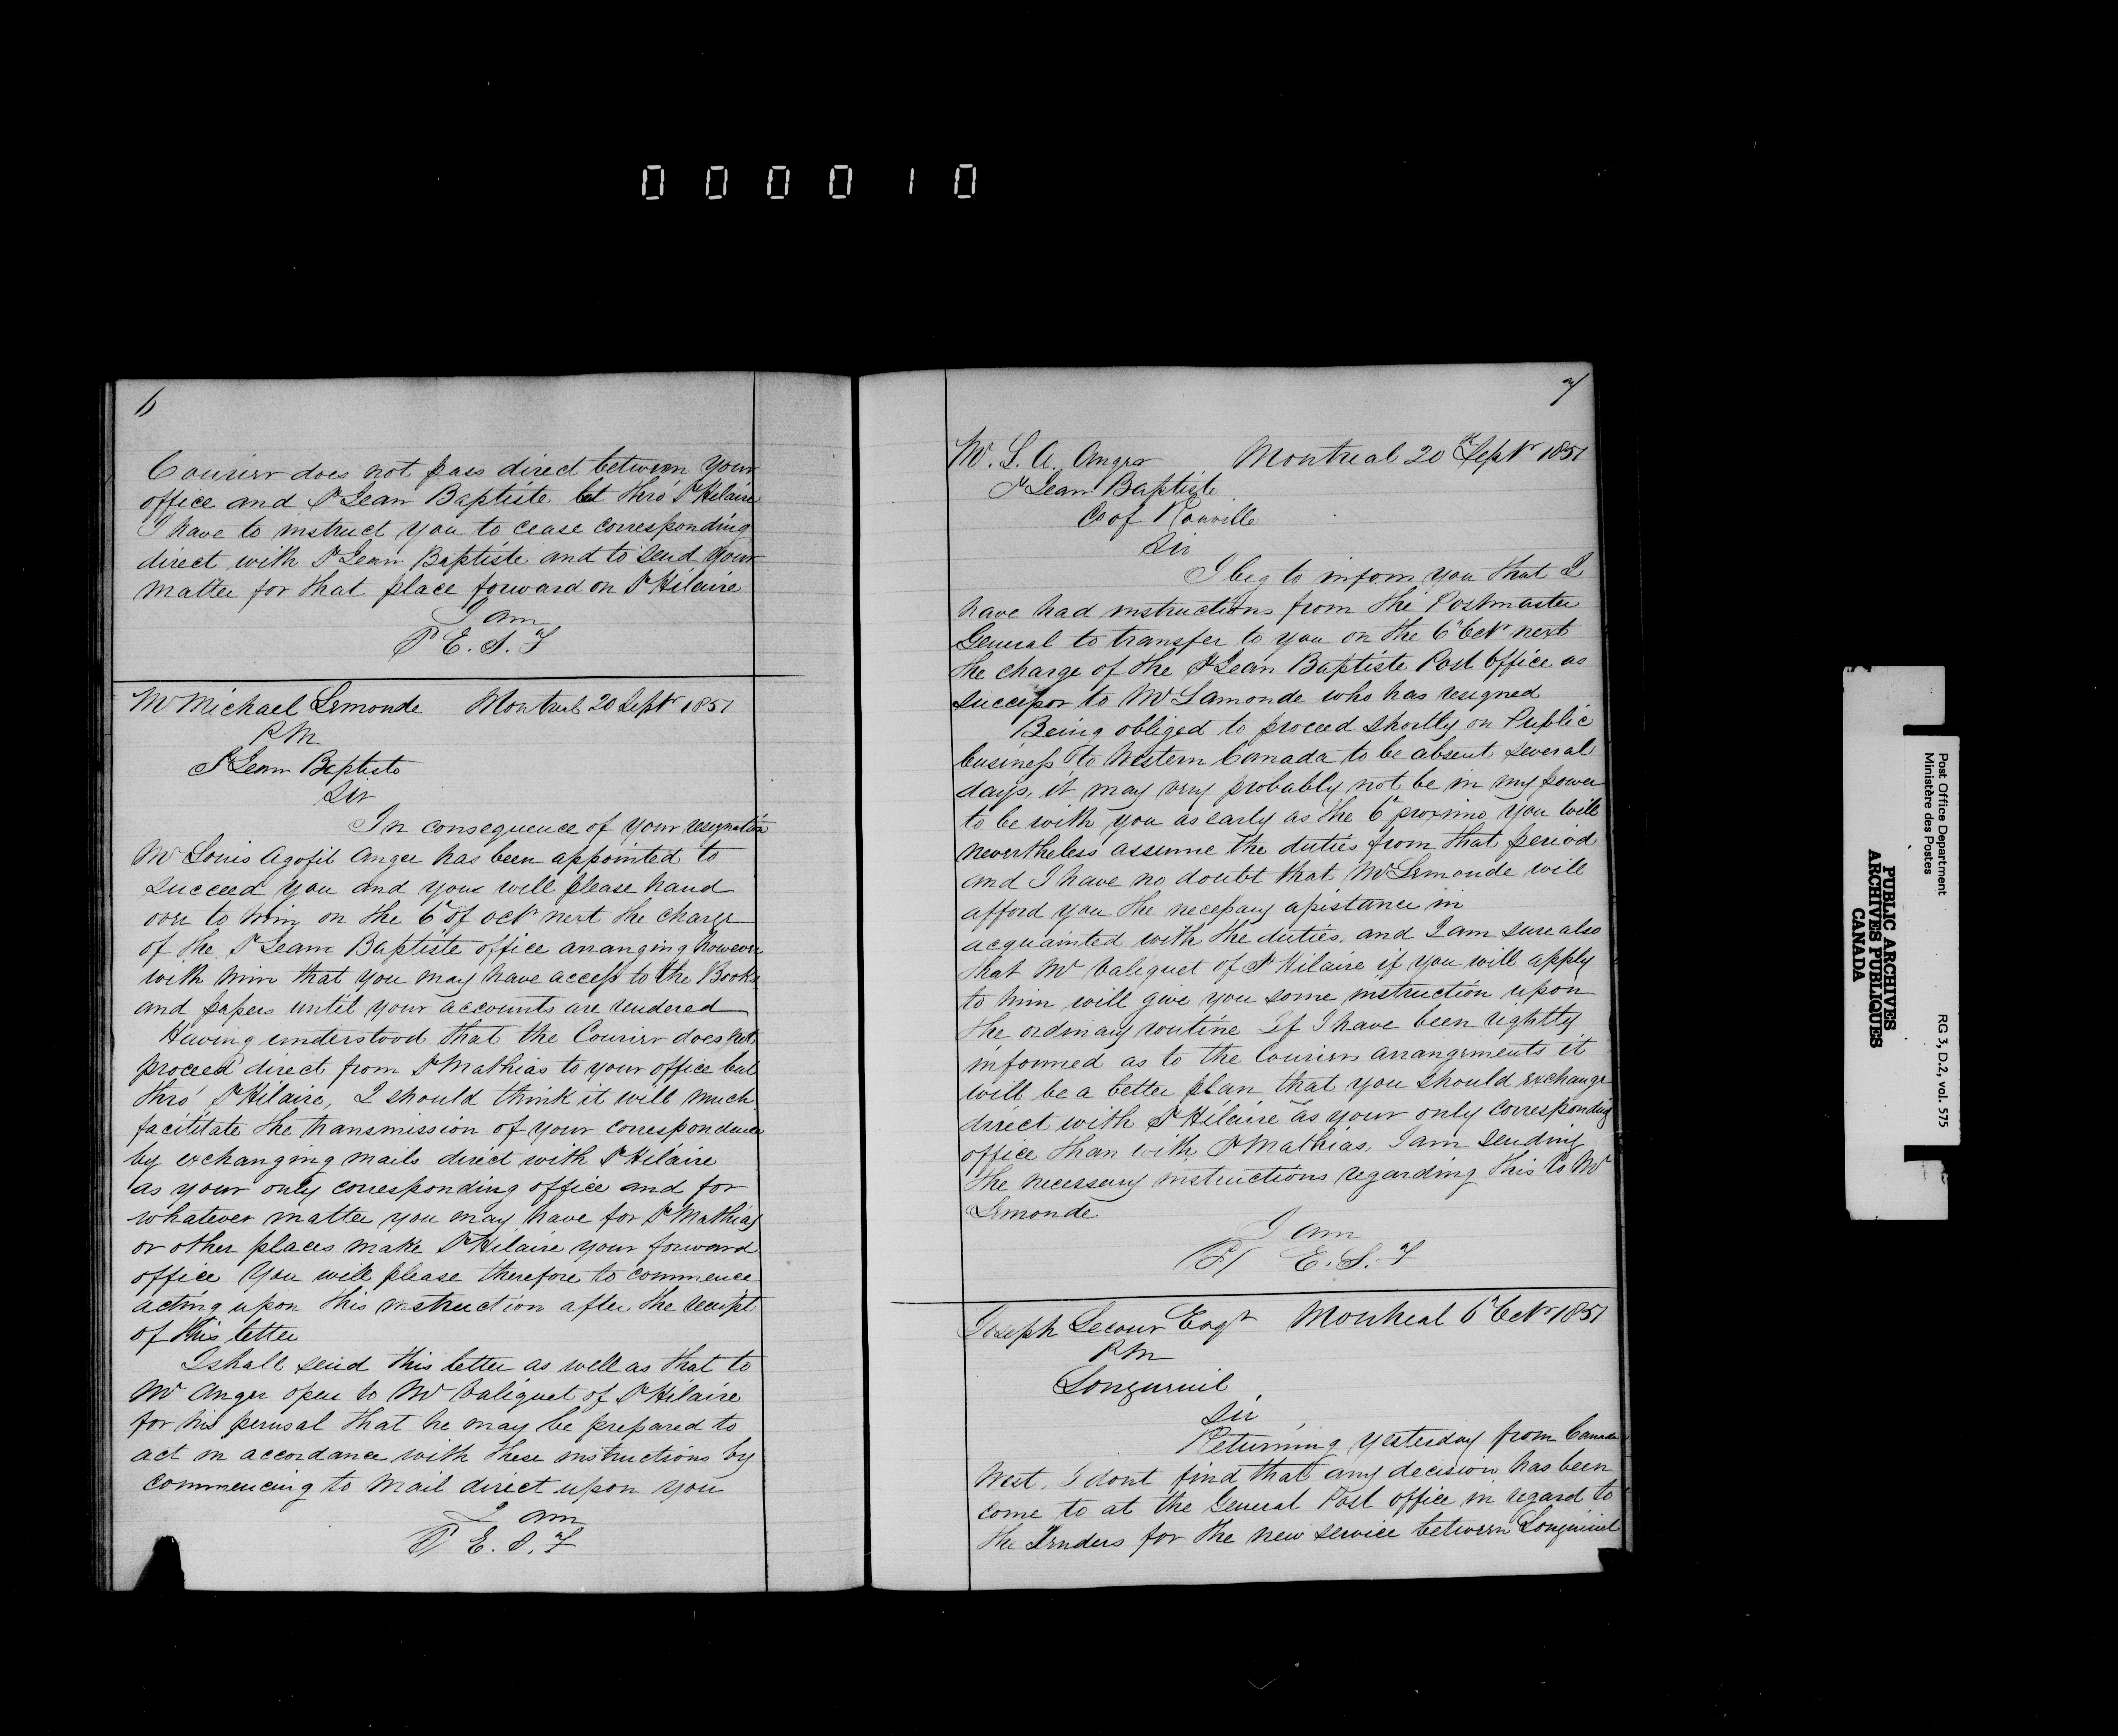 000010
6
Courier does not pass direct between your
office and St Jean Baptiste but thro' St Hilaire
I have to instruct you to cease corresponding
direct with St Jean Baptiste and to send your
matter for that place forward on St Hilaire
I am
E. S. F
Mr Michael Lemonde Montreal 20 Septr 1851
P M
St Jean Baptiste
Sir
In consequence of your resignation
Mr Louis Agofil Anger has been appointed to
succeed you and you will please hand
over to him on the 6th of Octr next the charge
of the St Jean Baptiste office arranging however
with him that you may have access to the Books
and papers until your accounts are rendered
Having understood that the Courier does not
proceed direct from St Mathias to your office but
thro' St Hilaire, I should think it will much
facilitate the transmission of your correspondence
by exchanging mails direct with St Hilaire
as your only corresponding office and for
whatever matter you may have for St Mathias
or other places make St Hilaire your forward
office You will please therefore to commence
acting upon this instruction after the receipt
of this letter
I shall send this letter as well as that to
Mr Anger open to Mr Valiquet of St Hilaire
for his perusal that he may be prepared to
act in accordance with these instructions by
commencing to mail direct upon you
I am
E. S. F
7
Mr. L. A. Anger Montreal 20th Septr 1851
St Jean Baptiste
Co of Rouville
Sir
I beg to inform you that I
have had instructions from the Postmaster
General to transfer to you on the 6th Octr next
the charge of the St Jean Baptiste Post Office as
successor to Mr Lamonde who has resigned
Being obliged to proceed shortly on Public
business to Western Canada to be absent several
days, it may very probably not be in my power
to be with you as early as the 6th proximo you will
nevertheless assume the duties from that period
and I have no doubt that Mr Lemonde will
afford you the necessary assistance in
acquainted with the duties, and I am sure also
that Mr Valiquet of St Hilaire if you will apply
to him will give you some instruction upon
the ordinary routine If I have been rightly
informed as to the Couriers arrangements it
will be a better plan that you should exchange
direct with St Hilaire as your only corresponding
office than with St Mathias, I am sending
the necessary instructions regarding this to Mr
Lemonde
I am
E. S. F
Joseph Lecour Esqr Montreal 6th Octr 1851
P M
Longueuil
Sir,
Returning yesterday from Canada
West, I dont find that any decision has been
come to at the General Post office in regard to
the Tenders for the new service between Longueuil
Post Office Department
Ministère des Postes
RG 3, D.2, vol. 575
PUBLIC ARCHIVES
ARCHIVES PUBLIQUES
CANADA